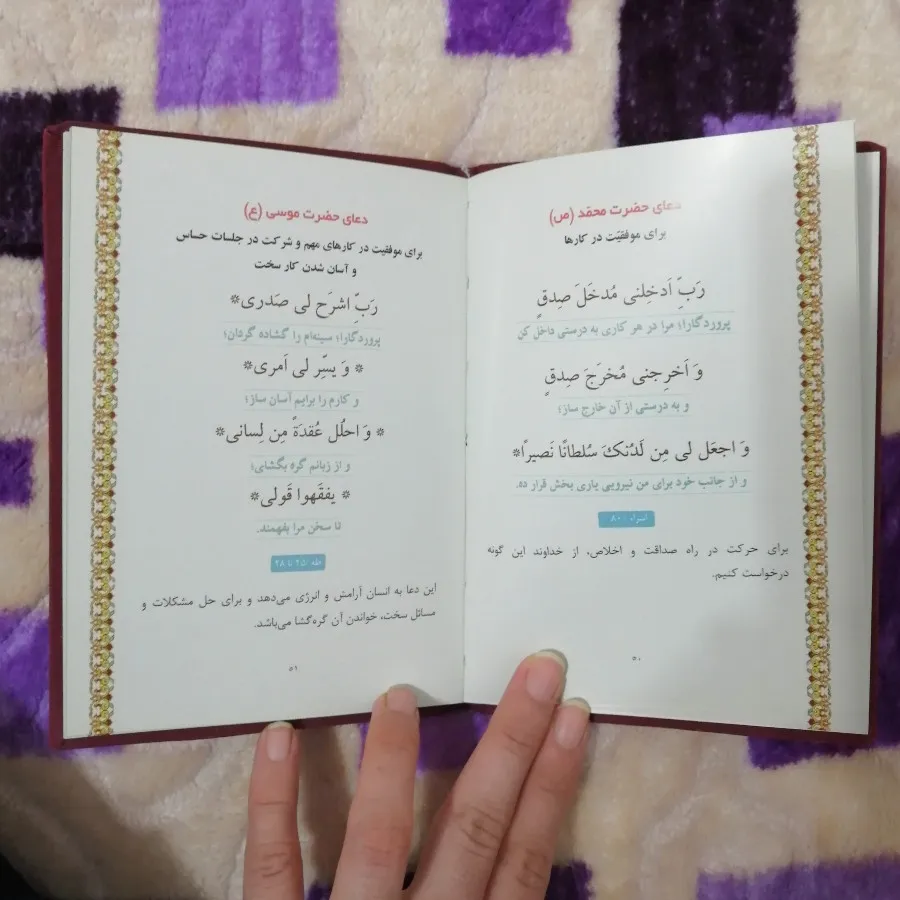 دعای حضرت محمّد (ص)
برای موفقیّت در کارها
رَبِّ اَدخِلنی مُدخَلَ صِدقٍ
پروردگارا؛ مرا در هر کاری به درستی داخل کن
وَ اَخرِجنی مُخرَجَ صِدقٍ
و به درستی از آن خارج ساز؛
وَ اجعَل لی مِن لَدُنکَ سُلطانًا نَصیراً*
و از جانب خود برای من نیرویی یاری بخش قرار ده.
اسراء ۸۰
برای حرکت در راه صداقت و اخلاص، از خداوند این گونه
درخواست کنیم.
۵۰
دعای حضرت موسی (ع)
برای موفقیت در کارهای مهم و شرکت در جلسات حساس
و آسان شدن کار سخت
رَبِّ اشرَح لی صَدری*
پروردگارا؛ سینه‌ام را گشاده گردان؛
* وَ یَسِّر لی اَمری*
و کارم را برایم آسان ساز؛
* وَ احلُل عُقدَةً مِن لِسانی*
و از زبانم گره بگشای؛
* یَفقَهوا قَولی*
تا سخن مرا بفهمند.
طه ۲۵ تا ۲۸
این دعا به انسان آرامش و انرژی می‌دهد و برای حل مشکلات و
مسائل سخت، خواندن آن گره‌گشا می‌باشد.
۵۱